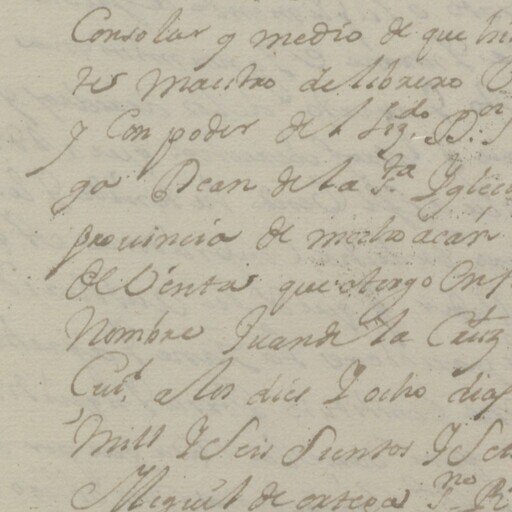 Consolar y medio de que hi
tes maestro de librero
y Con poder de l Liz.do D.n
go Dean de la S.ta Iglecia
provincia de mechoacán
de Venta que otorgo En
Nombre Juan de la Cruz
Ciu.d a los dies Y ocho dias
Mill Y Seis Sientos Y Se
Miguel de ortega S.no R